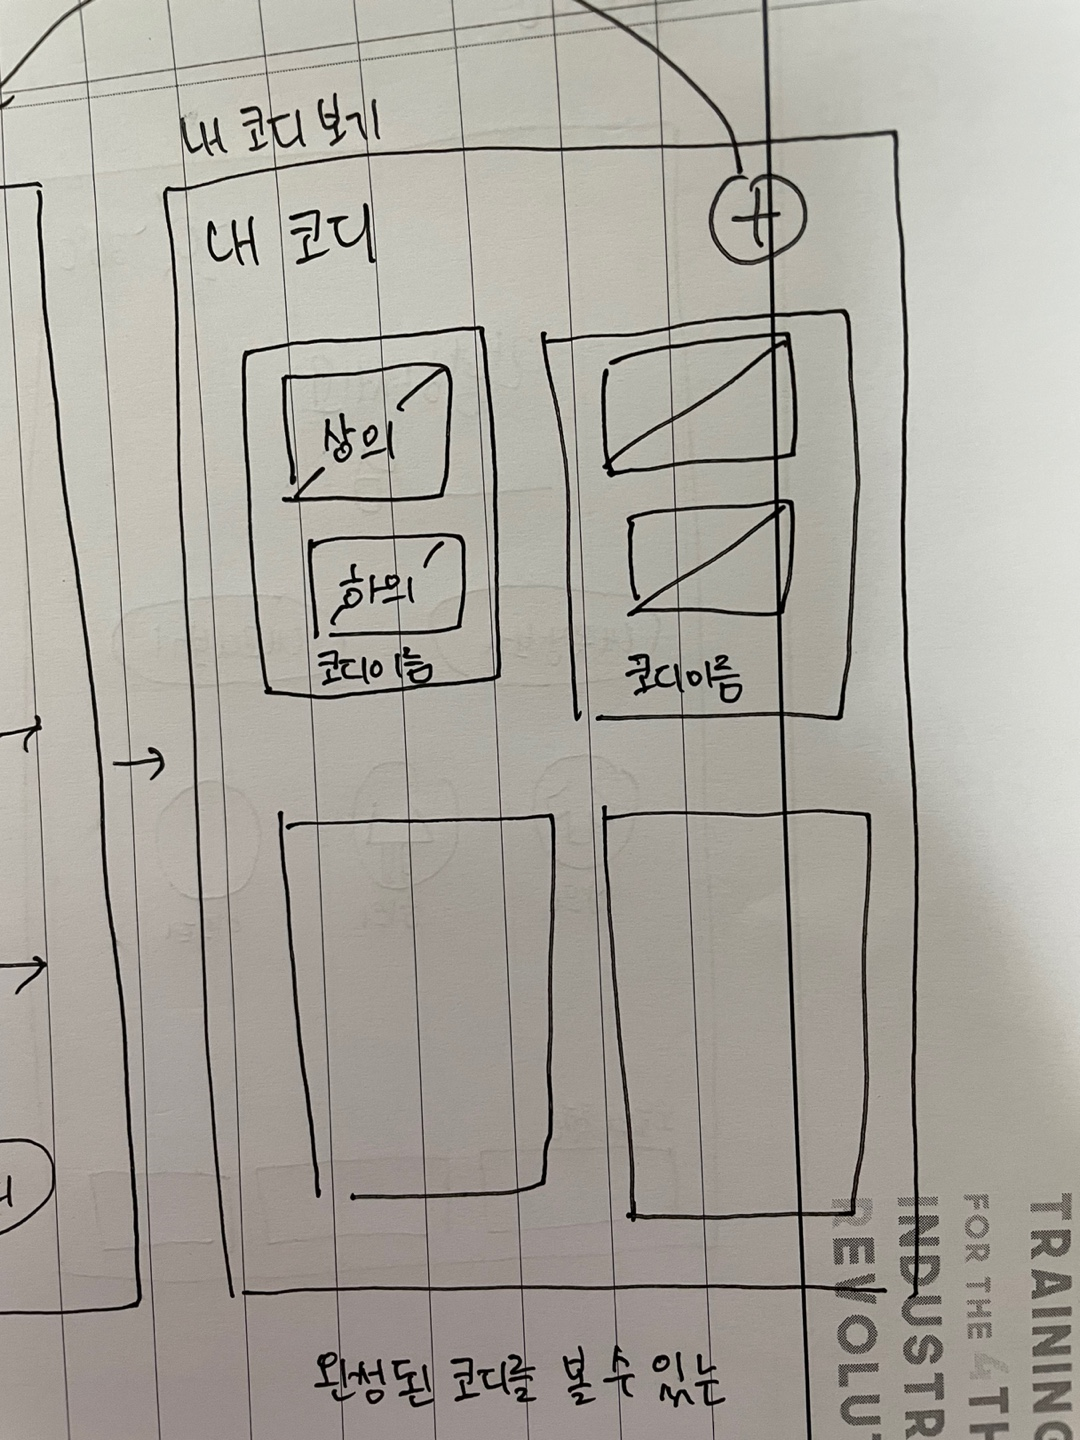 내 코디 보기
내 코디
+
상의
하의
코디이름
코디이름
완성된 코디를 볼 수 있는
TRAINING
FOR THE 4TH
INDUSTR
REVOLU